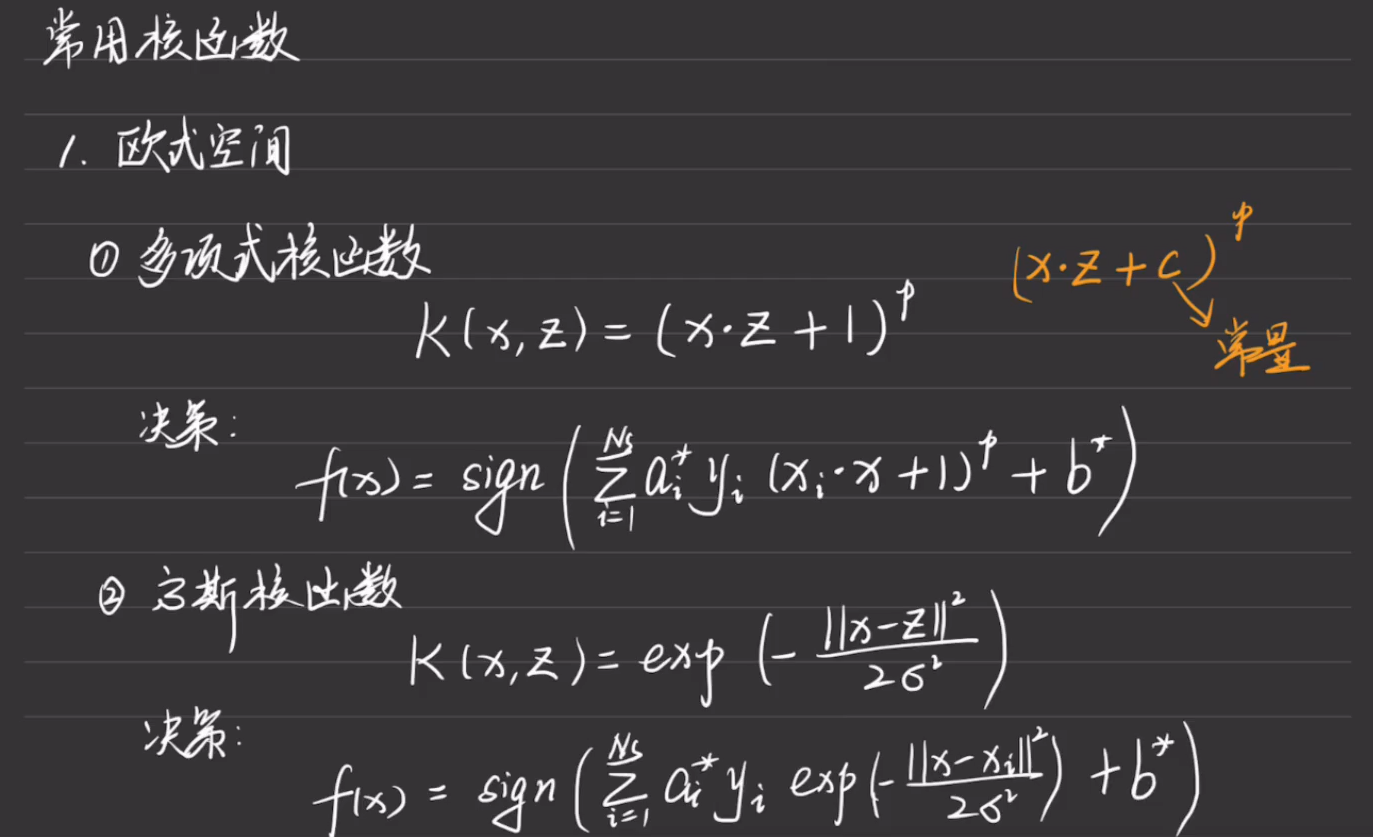 常用核函数
1. 欧式空间
① 多项式核函数
K(x,z)=(x·z+1)^p
(x·z+c)^p
常量
决策:
f(x)=sign(∑_{i=1}^{Ns} a_i^* y_i (x_i·x+1)^p+b^*)
② 高斯核函数
K(x,z)=exp(-||x-z||²/2σ²)
决策:
f(x)=sign(∑_{i=1}^{Ns} a_i^* y_i exp(-||x-x_i||²/2σ²)+b^*)